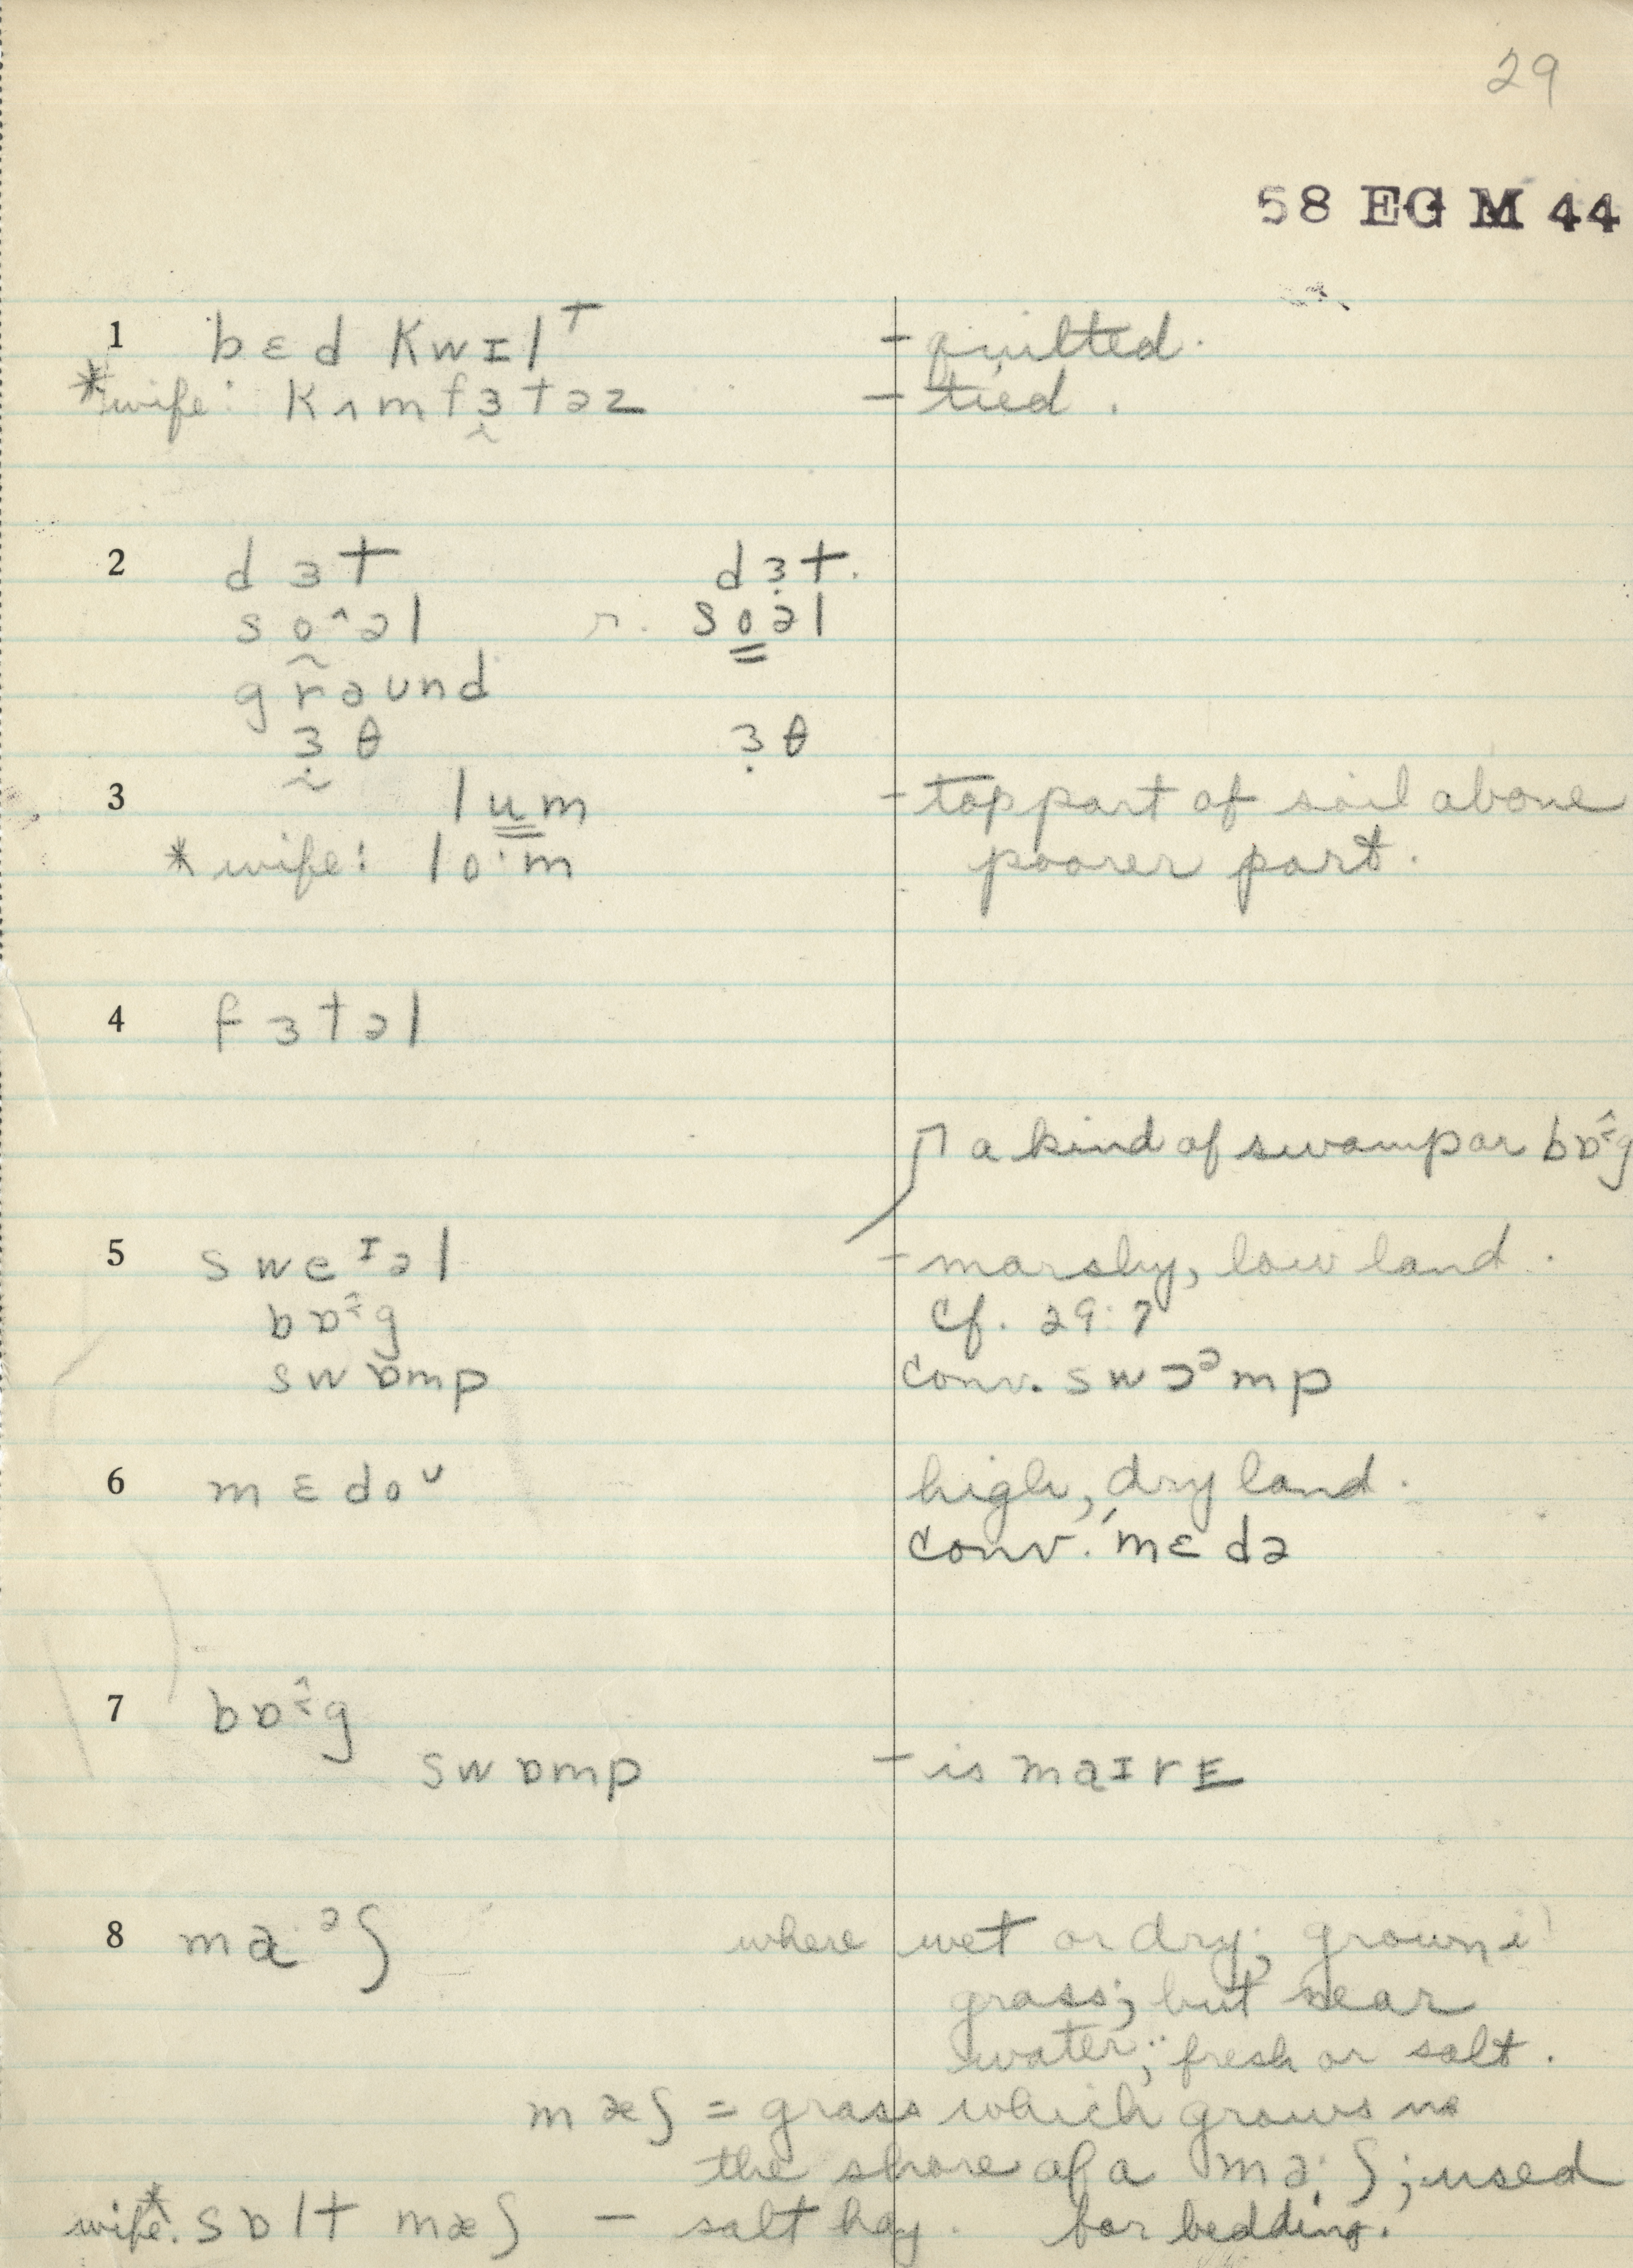 29
58 EG M 44
1 bɛd kwɪlt - quilted.
*wife: kʌmfɜ̰təz - tied.
2 dɜt dɜ̣t.
so^əl r. so̳əl
gr̃aund
ɜ̣̰θ ɜ̣θ
3 lu̳m - top part of soil above
* wife: lo·m poorer part.
4 fɜtəl
a kind of swamp or bɒ:g
5 sweᶦəl - marshy, low land.
bɒ:g cf. 29:7
swɒmp conv. swɔᵊmp
6 mɛdoᵘ high, dry land.
conv. ˈmɛdə
7 bɒ:g
swɒmp - is maɪrE̲
8 ma·ᵊʃ where wet or dry;
grass; but near
water; fresh or salt.
mæʃ = grass which grows
the shore of a ma·ʃ; used
wife* sɒlt mæʃ - salt hay. for bedding.